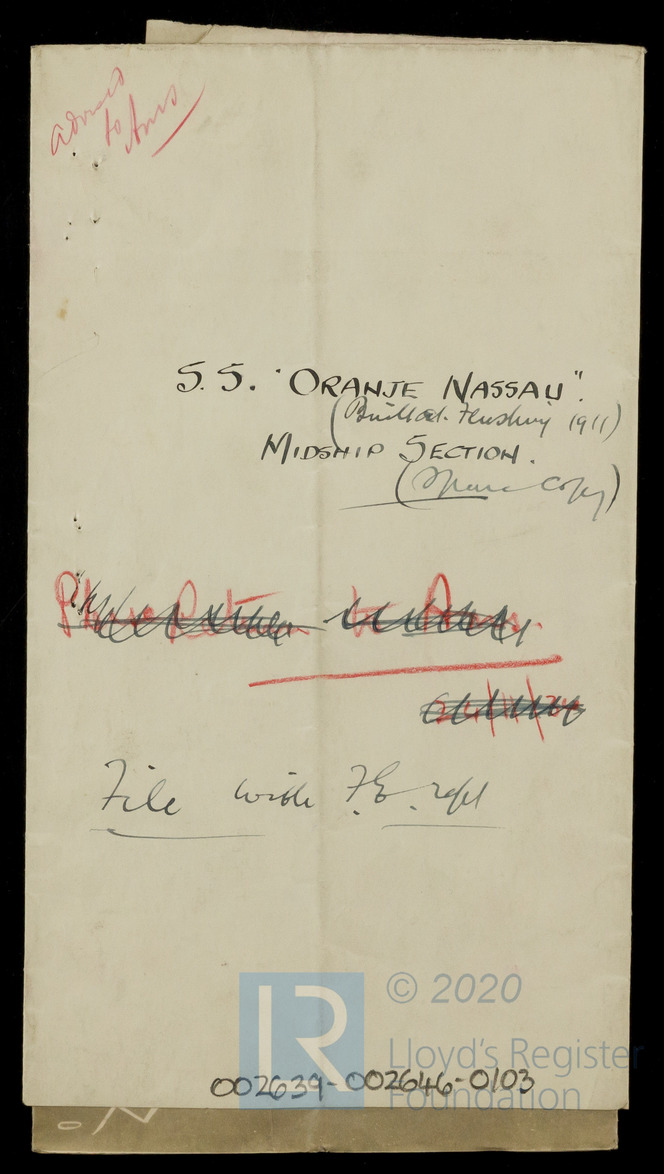 to
S.S. "ORANJE NASSAU".
(Built at Flushing 1911)
MIDSHIP SECTION.
(Spare Copy)
Please Return to
File with F.E. rept
LR
© 2020
Lloyd's Register
Foundation
002639-002646-0103